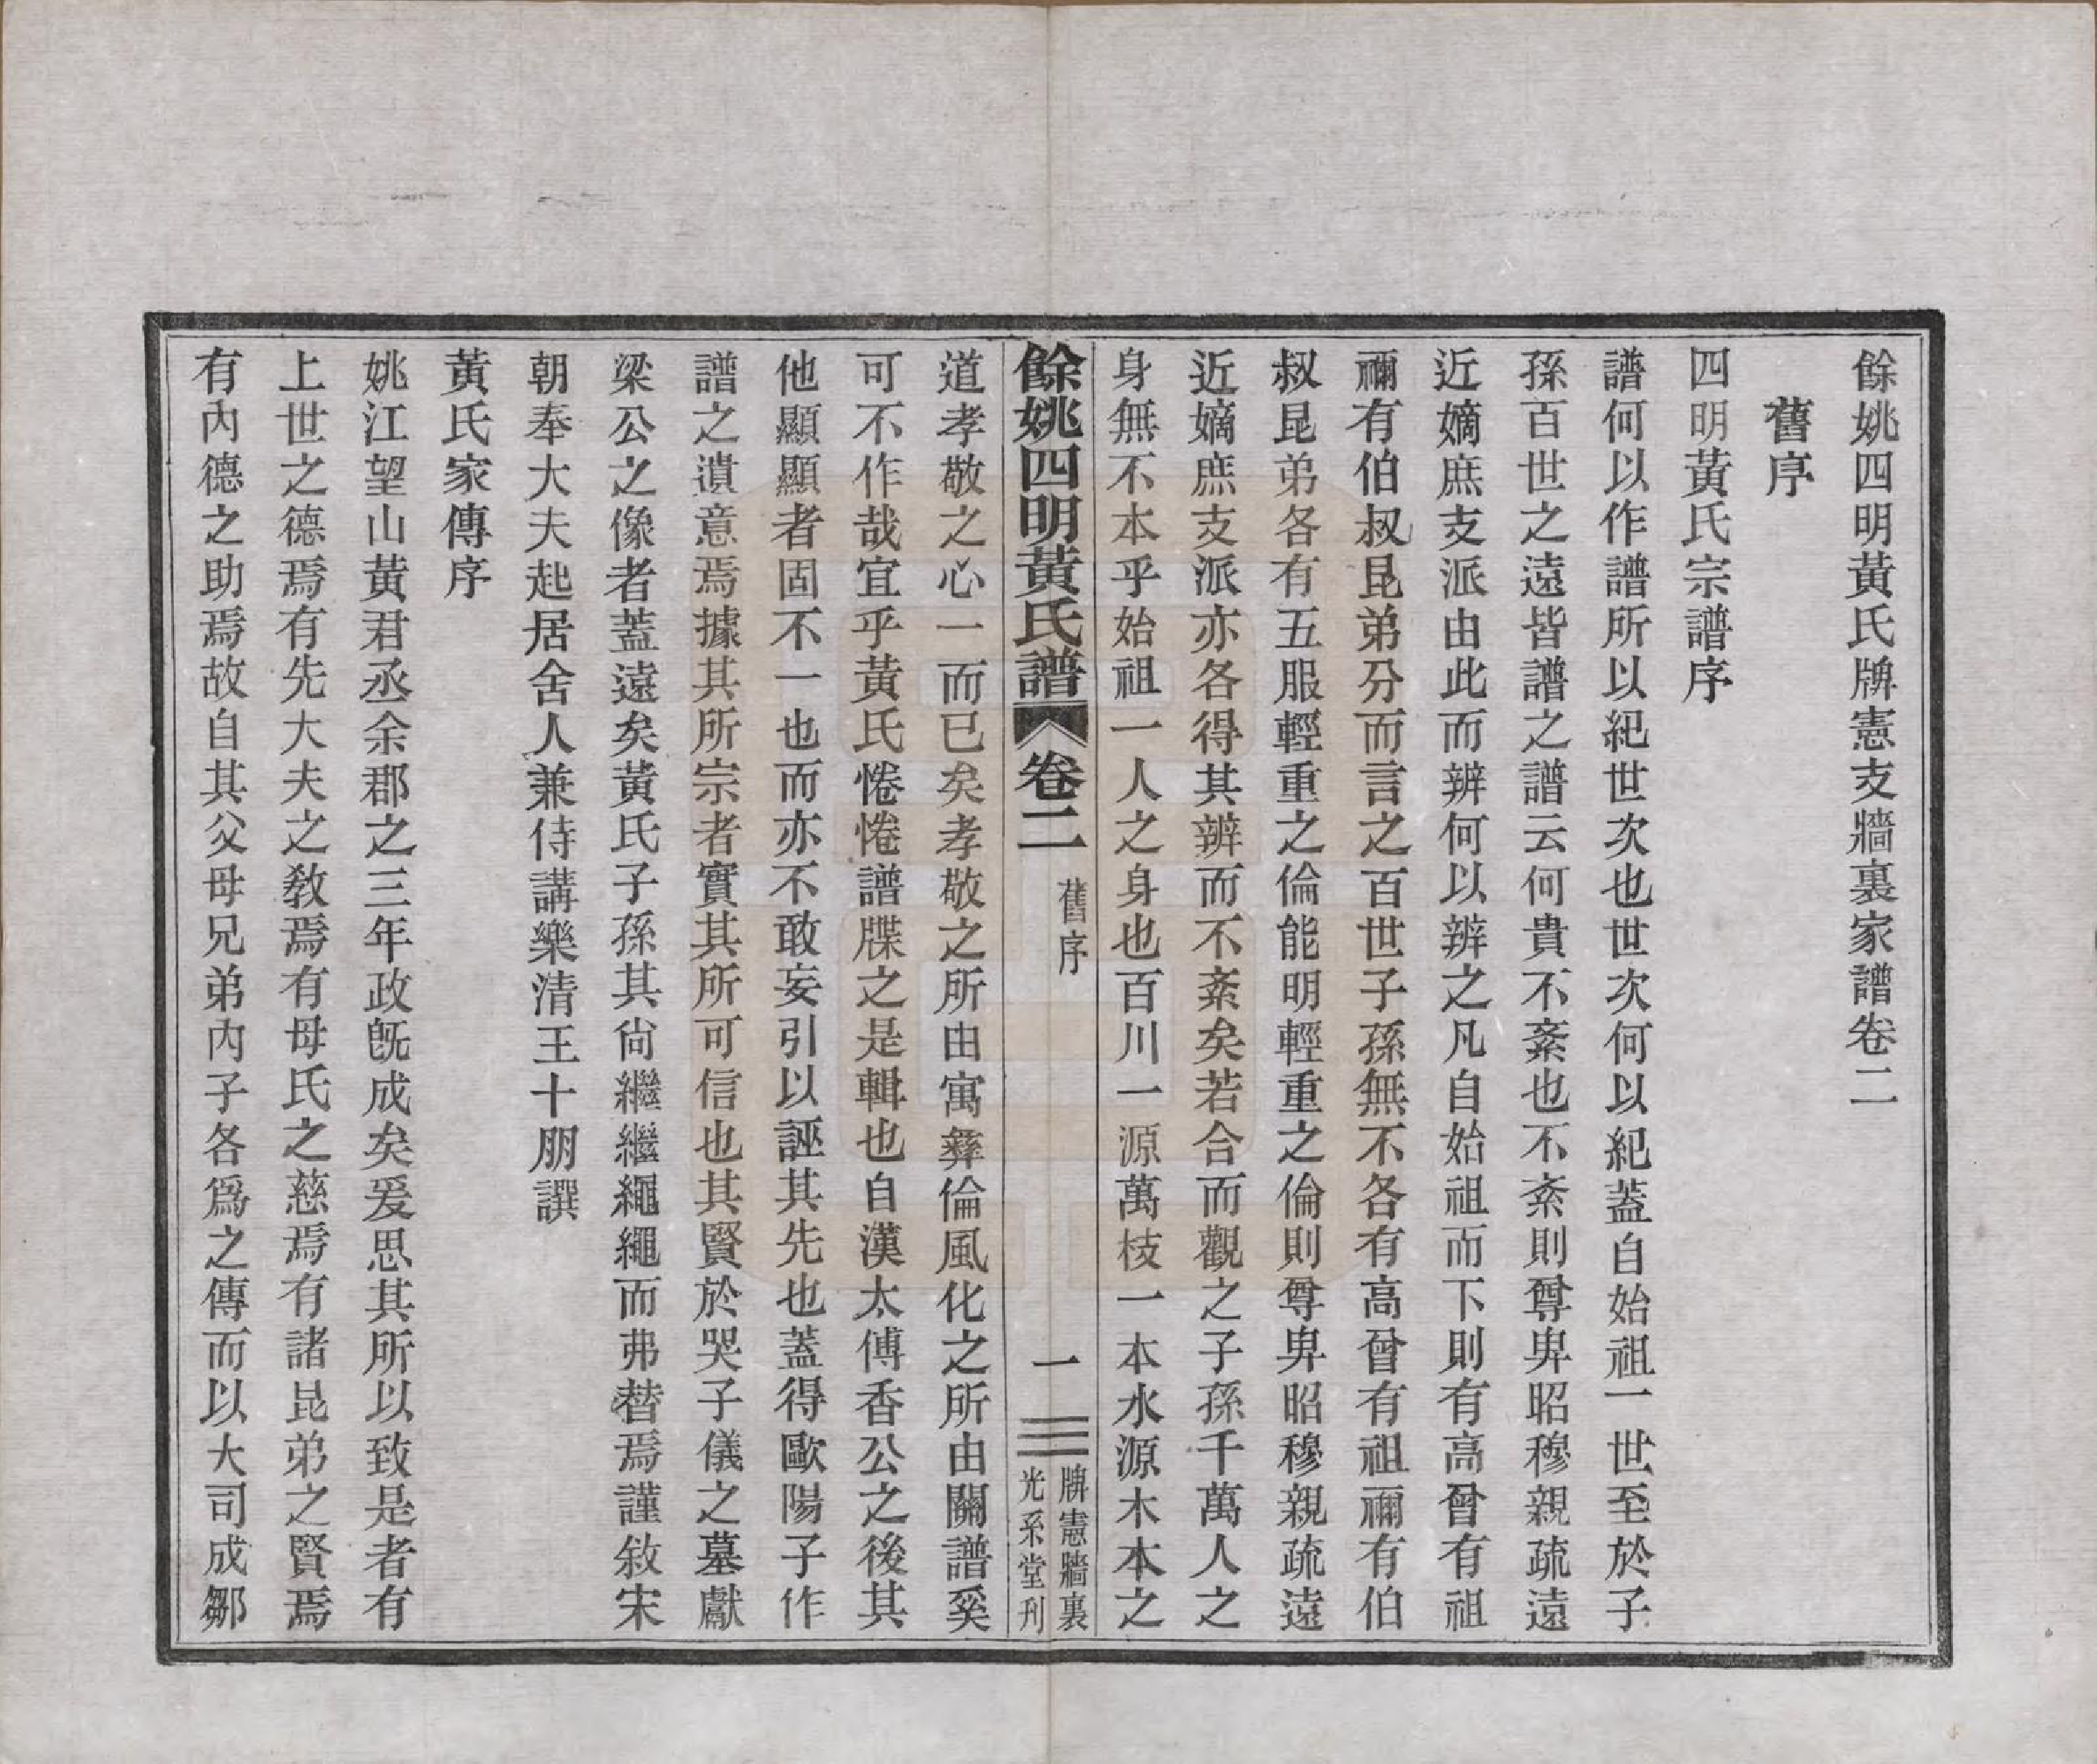 餘姚四明黃氏牌憲支牆裏家譜卷二
舊序
四明黃氏宗譜序
譜何以作譜所以紀世次也世次何以紀蓋自始祖一世至於子
孫百世之遠皆譜之譜云何貴不紊也不紊則尊卑昭穆親疏遠
近嫡庶支派由此而辨何以辨之凡自始祖而下則有高曾有祖
禰有伯叔昆弟分而言之百世子孫無不各有高曾有祖禰有伯
叔昆弟各有五服輕重之倫能明輕重之倫則尊卑昭穆親疏遠
近嫡庶支派亦各得其辨而不紊矣若合而觀之子孫千萬人之
身無不本乎始祖一人之身也百川一源萬枝一本水源木本之
餘姚四明黃氏譜 卷二 舊序 一 牌憲牆裏 光系堂刋
道孝敬之心一而已矣孝敬之所由寓彝倫風化之所由關譜奚
可不作哉宜乎黃氏惓惓譜牒之是輯也自漢太傅香公之後其
他顯顯者固不一也而亦不敢妄引以誣其先也蓋得歐陽子作
譜之遺意焉據其所宗者實其所可信也其賢於哭子儀之墓獻
梁公之像者蓋遠矣黃氏子孫其尙繼繼繩繩而弗替焉謹敘宋
朝奉大夫起居舍人兼侍講樂清王十朋譔
黃氏家傳序
姚江望山黃君丞余郡之三年政旣成矣爰思其所以致是者有
上世之德焉有先大夫之敎焉有母氏之慈焉有諸昆弟之賢焉
有內德之助焉故自其父母兄弟內子各爲之傳而以大司成鄒